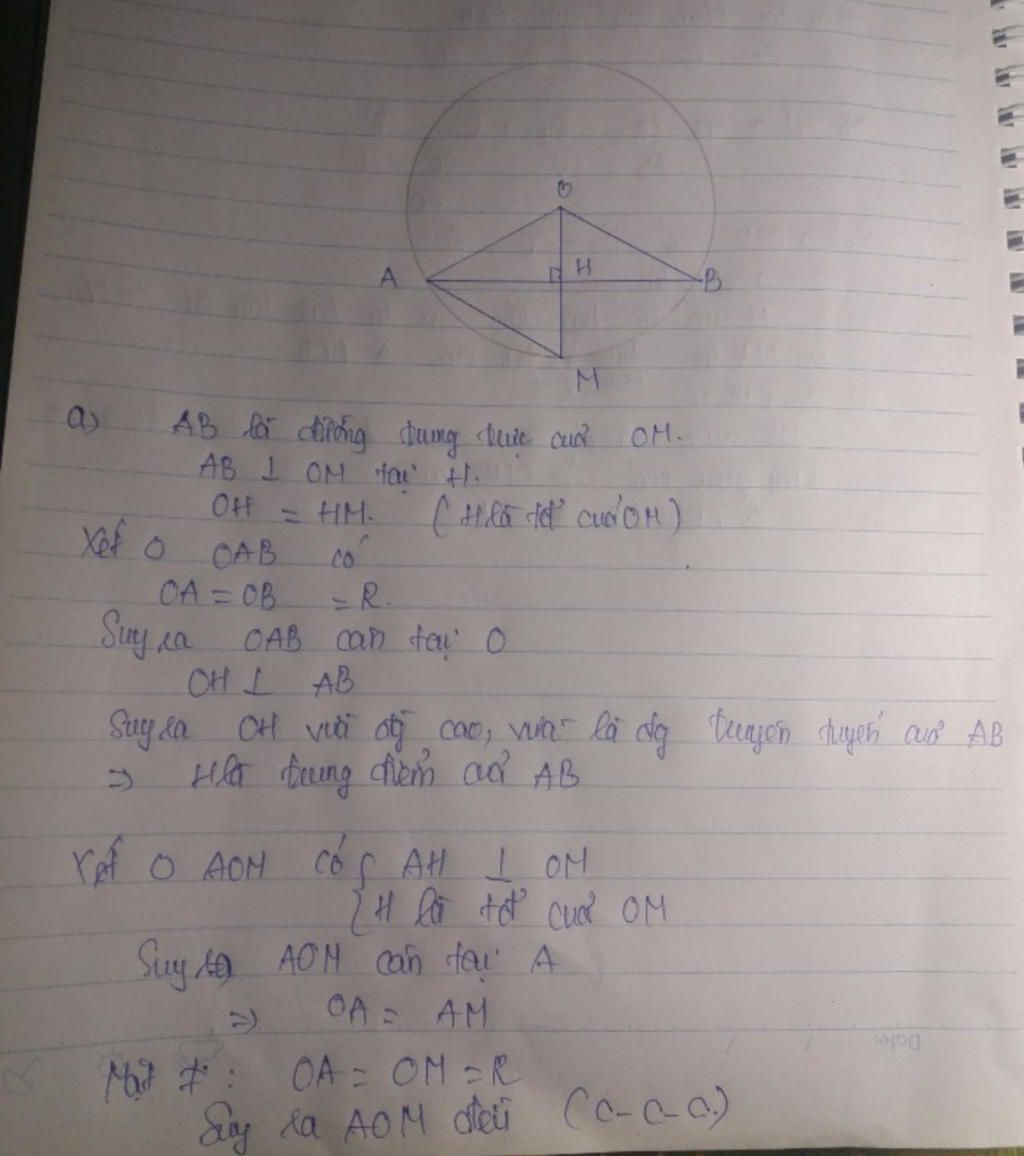 O
A
H
B
M
a) AB là đường trung trực của OM.
AB ⊥ OM tại H.
OH = HM. (H là tđ của OM)
Xét O OAB có
OA = OB = R.
Suy ra OAB cân tại O
OH ⊥ AB
Suy ra OH vừa đg cao, vừa là đg truyến tuyến của AB
=> H là trung điểm của AB
Xét O AOM có { AH ⊥ OM
H là tđ của OM
Suy ra AOM cân tại A
=> OA = AM
Mặt ≠: OA = OM = R
Suy ra AOM đều (C-C-C.)
Date: / /